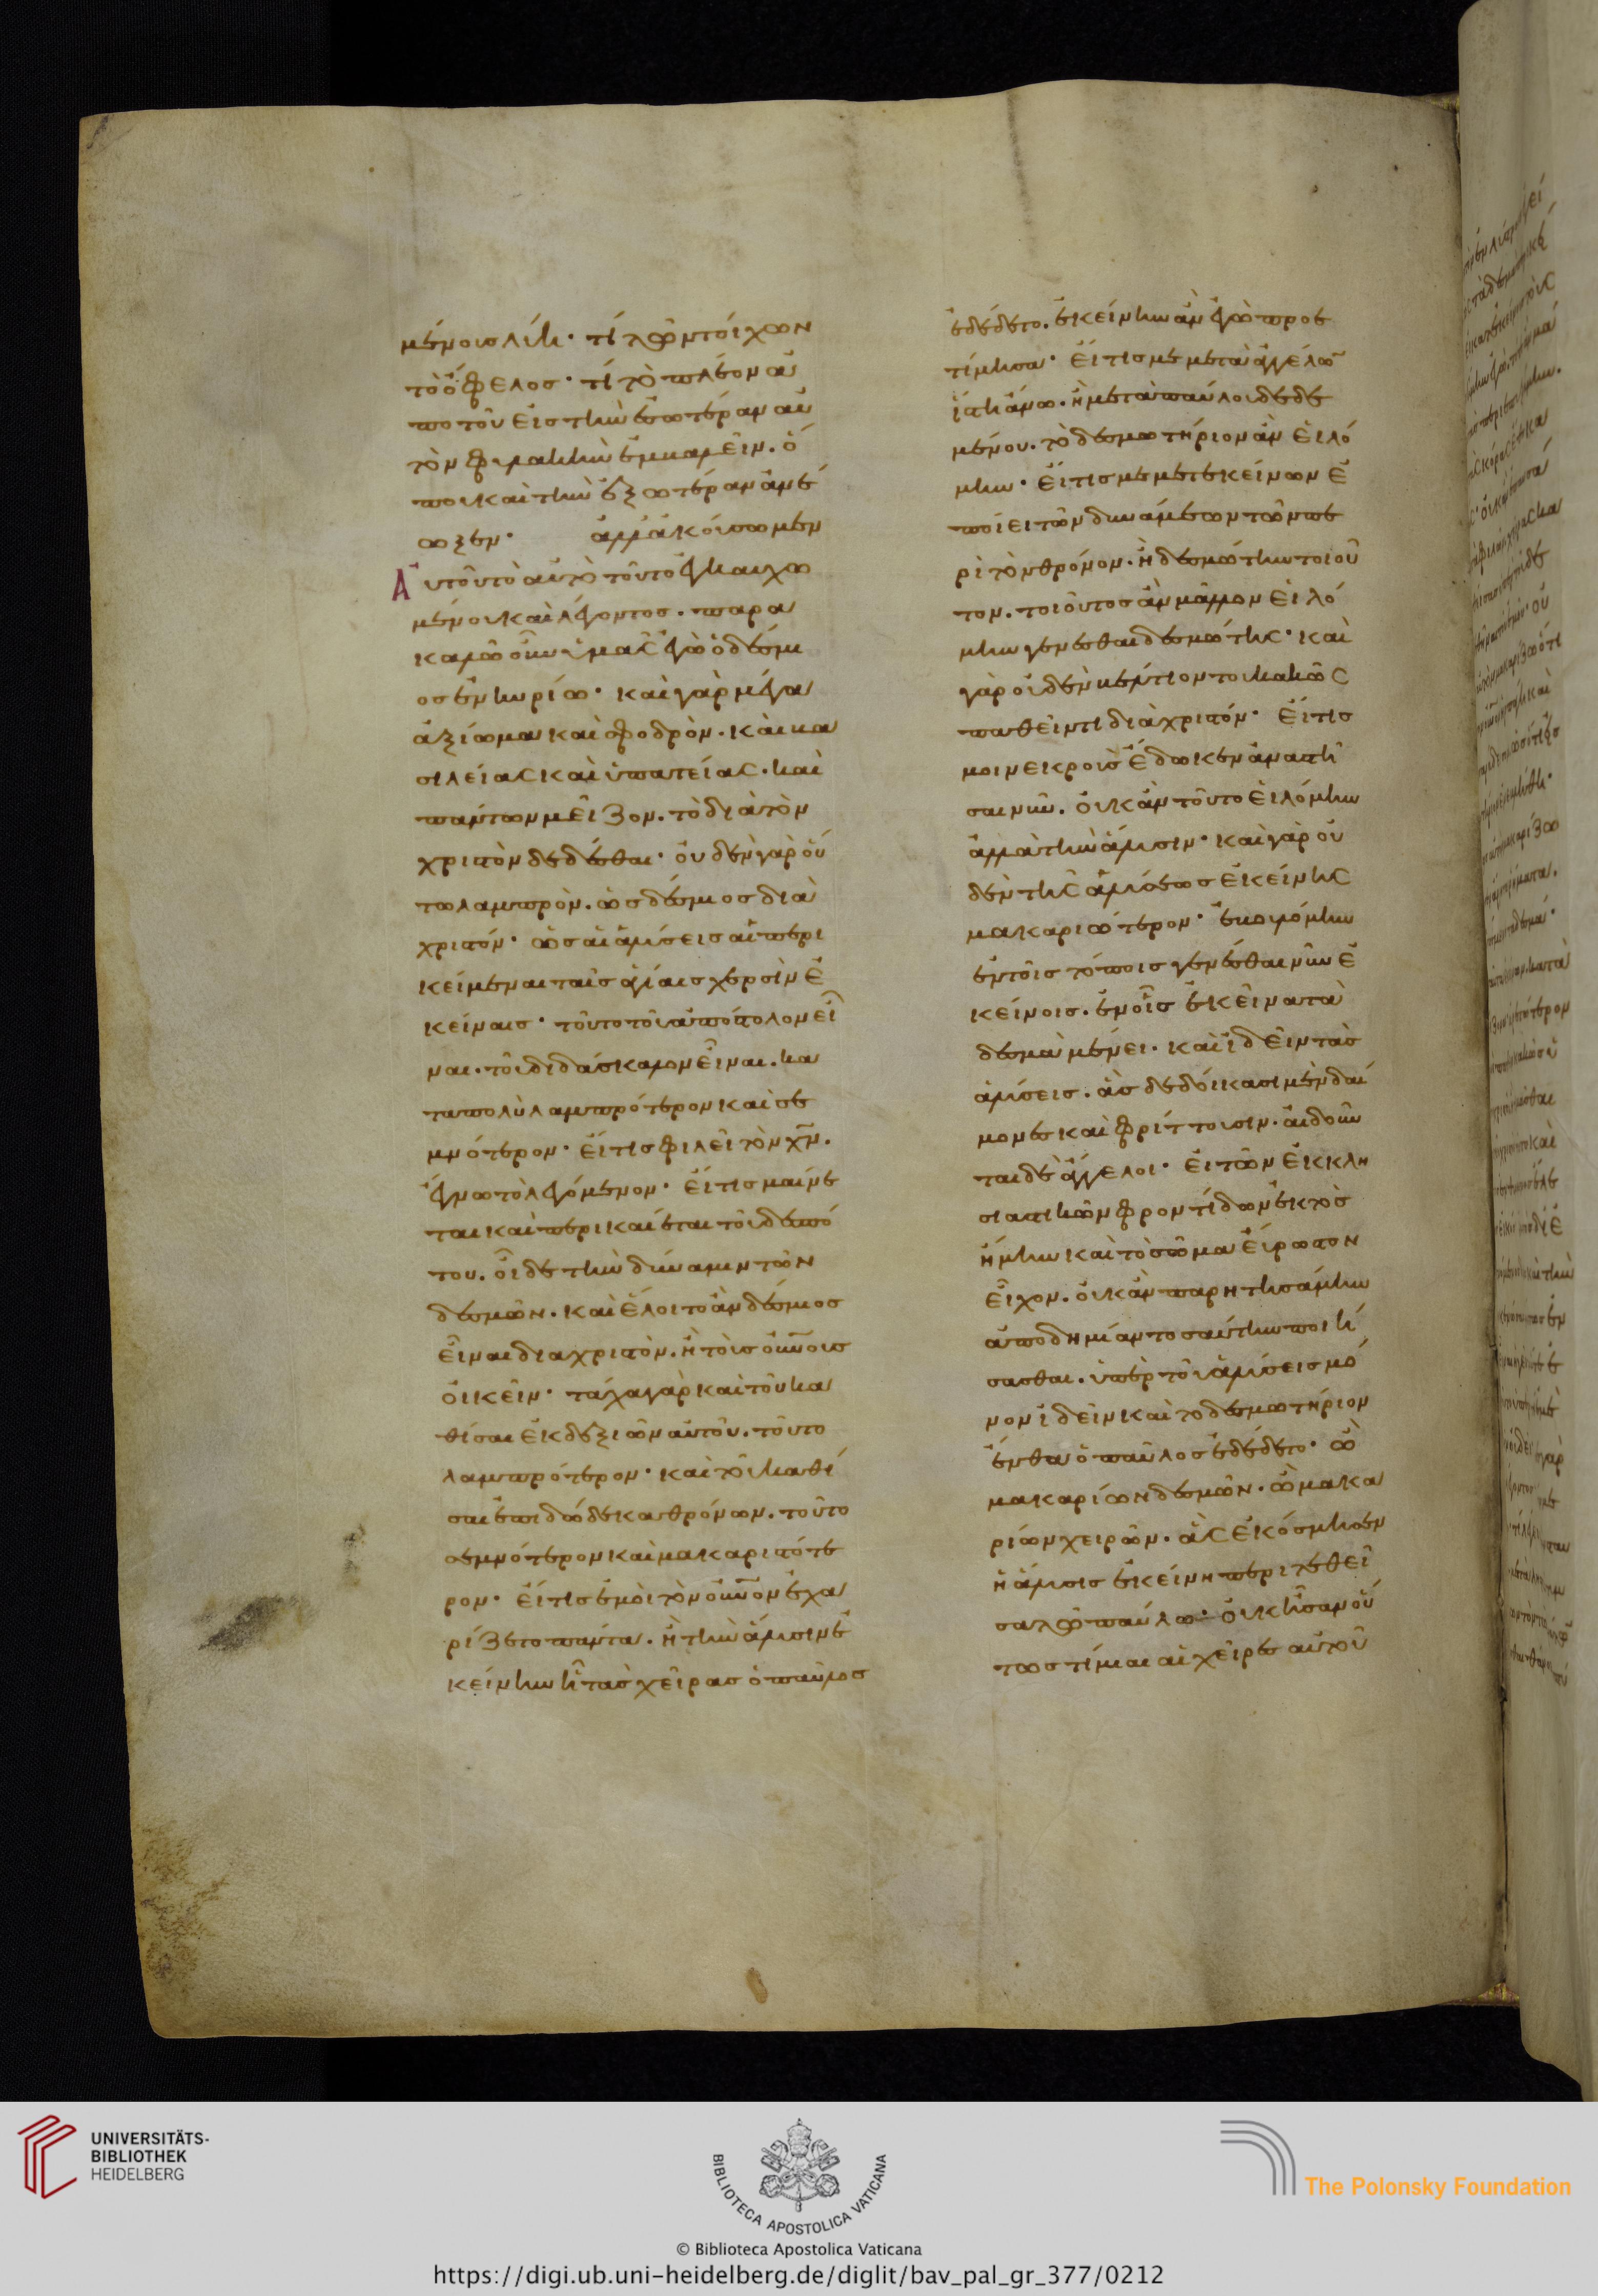 μένους λύη· τί τῶν τοίχων
τὸ ὄφελος· τί τὸ πλέον ἀ
πὸ τοῦ εἰς τὴν ἐσωτέραν αὐ
τὸν φυλακὴν ἐμβαλεῖν· ὅ
που καὶ τὴν ἐξωτέραν ἀνέ
ωξεν· ἀλλ' ἀκούσωμεν
Αὐτοῦ τὸ αὐτὸ τοῦτο ἐγκαυχω
μένου καὶ λέγοντος· παρα
καλῶ οὖν ὑμᾶς ἐγὼ ὁ δέσμι
ος ἐν κυρίω· καὶ γὰρ μέγα
ἀξίωμα καὶ σφοδρὸν· καὶ βα
σιλείας καὶ ὑπατείας· καὶ
πάντων μεῖζον· τὸ διὰ τὸν
χριστὸν δεδέσθαι· οὐδὲν γὰρ οὕ
τω λαμπρὸν· ὡς δέσμιος διὰ
χριστόν· ὡς αἱ ἁλύσεις αἱ περι
κείμεναι ταῖς ἁγίαις χερσὶν ἐ
κείναις· τοῦτο τοῦ ἀπόστολον εἶ
ναι· τοῦ διδάσκαλον εἶναι· κα
τα πολὺ λαμπρότερον καὶ σε
μνότερον· εἴ τις φιλεῖ τὸν χν̅·
ἔγνω τὸ λεγόμενον· εἴ τις μαίνε
ται καὶ περικαίεται τοῦ δεσπό
του· οἶδε τὴν δύναμιν τῶν
δεσμῶν· καὶ ἕλοιτο ἂν δέσμιος
εἶναι δια χριστὸν· ἢ τοὺς οὐν̅ους
οἰκεῖν· τάχα γὰρ καὶ τοῦ κα
θίσαι ἐκ δεξιῶν αὐτοῦ· τοῦτο
λαμπρότερον· καὶ τοῦ καθί
σαι ἐπι δώδεκα θρόνων· τοῦτο
σεμνότερον καὶ μακαριστότε
ρον· εἴ τις ἐμοὶ τὸν οὐν̅ον ἐχα
ρίζετο πάντα· ἢ τὴν ἅλυσιν ἐ
κείνην ἧ τὰς χεῖρας ὁ παῦλος
ἐδέδετο· ἐκείνην ἂν ἐγὼ προε
τίμησα· εἴ τις με μετὰ ἀγγέλω
ἵστη ἄνω· ἢ μετὰ παύλου δεδε
μένου· τὸ δεσμωτήριον ἂν εἱλό
μην· εἴ τις με μετ' ἐκείνων ἐ
ποίει τῶν δυνάμεων τῶν πε
ρὶ τὸν θρόνον· ἢ δεσμώτην τοιοῦ
τον· τοιοῦτος ἂν μᾶλλον εἱλό
μην γενέσθαι δεσμώτης· καὶ
γὰρ οὐδὲν βέλτιον τοῦ κακῶς
παθεῖν τι διὰ χριστόν· εἴ τις
μοι νεκροὺς ἔδωκεν ἀναστῆ
σαι νῦν· οὐκ ἂν τοῦτο εἱλόμην
ἀλλὰ τὴν ἅλυσιν· καὶ γὰρ οὐ
δὲν τῆς ἁλύσεως ἐκείνης
μακαριώτερον· ἐβουλόμην
ἐν τοῖς τόποις γενέσθαι νῦν ἐ
κείνοις· ἐν οἷς ἐκεῖνα τὰ
δεσμὰ μένει· καὶ ἰδεῖν τὰς
ἁλύσεις· ἃς δεδοίκασι μὲν δαί
μονες καὶ φρίττουσιν· αἰδοῦν
ται δὲ ἄγγελοι· εἰ τῶν ἐκκλη
σιαστικῶν φροντίδων ἐκτὸς
ἤμην καὶ τὸ σῶμα εὔρωστον
εἶχον· οὐκ ἂν παρητησάμην
ἀποδημίαν τοσαύτην ποιή
σασθαι· ὑπὲρ τοῦ ἁλύσεις μό
νον ἰδεῖν καὶ το δεσμωτήριον
ἔνθα ὁ παῦλος ἐδέδετο· ὢ
μακαρίων δεσμῶν· ὢ μακα
ρίων χειρῶν· ἃς ἐκόσμησεν
ἡ ἅλυσις ἐκείνη περιτεθεῖ
σα τῷ παύλω· οὐκ ἦσαν οὕ
τως τίμιαι αἱ χεῖρες αὐτοῦ
UNIVERSITÄTS-
BIBLIOTHEK
HEIDELBERG
BIBLIOTECA APOSTOLICA VATICANA
© Biblioteca Apostolica Vaticana
The Polonsky Foundation
https://digi.ub.uni-heidelberg.de/diglit/bav_pal_gr_377/0212